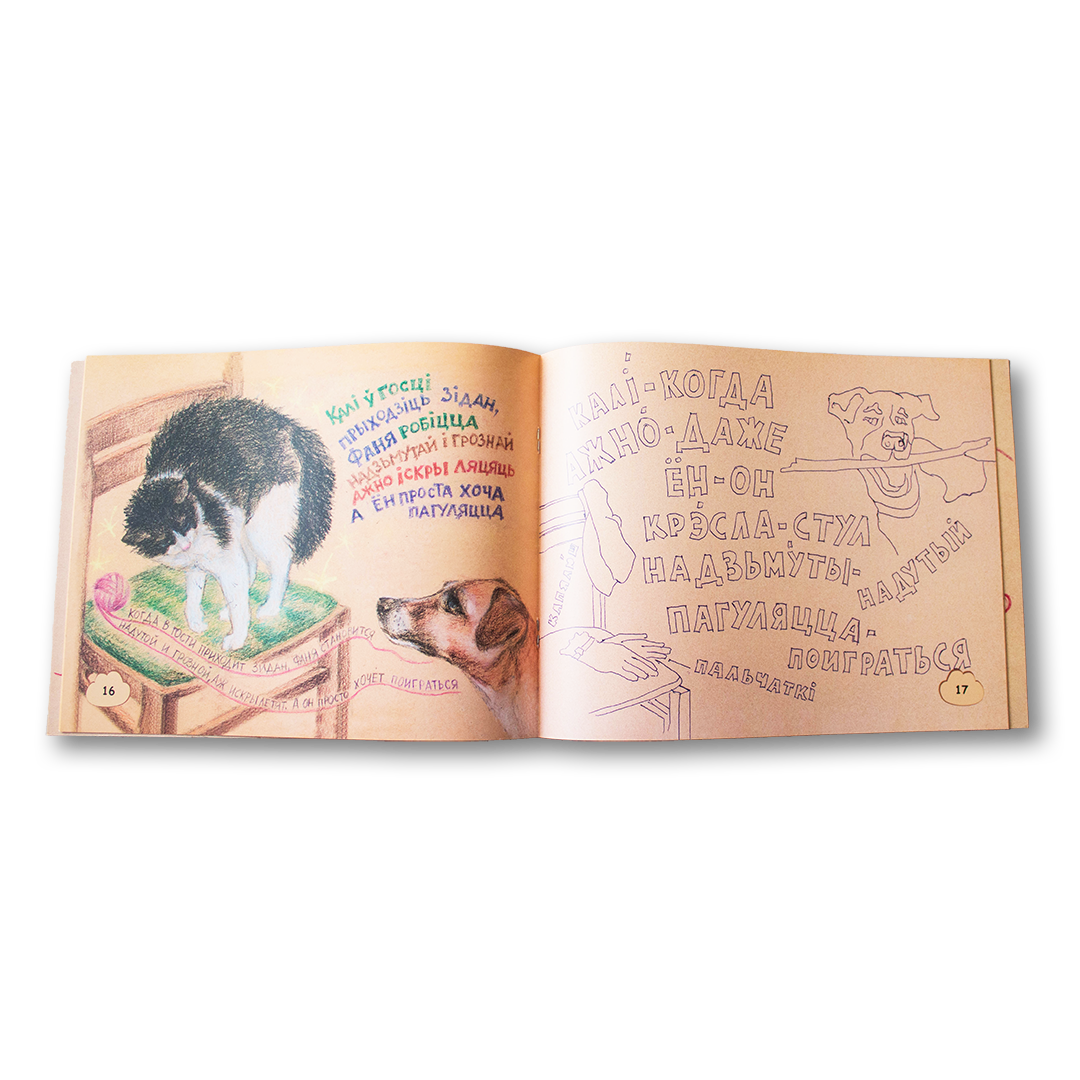 КАЛІ Ў ГОСЦІ
ПРЫХОДЗІЦЬ ЗІДАН,
ФАНЯ РОБІЦЦА
НАДЗЬМУТАЙ І ГРОЗНАЙ
АЖНО ІСКРЫ ЛЯЦЯЦЬ
А ЁН ПРОСТА ХОЧА
ПАГУЛЯЦЦА
КОГДА В ГОСТИ ПРИХОДИТ ЗИДАН, ФАНЯ СТАНОВИТСЯ
НАДУТОЙ И ГРОЗНОЙ АЖ ИСКРЫ ЛЕТЯТ. А ОН ПРОСТО ХОЧЕТ ПОИГРАТЬСЯ
16
КАЛІ - КОГДА
АЖНО́ - ДАЖЕ
ЁН - ОН
КРЭ́СЛА - СТУЛ
НАДЗЬМУ́ТЫ -
НАДУТЫЙ
ПАГУЛЯЦЦА -
ПОИГРАТЬСЯ
ПАЛЬЧАТКІ
17